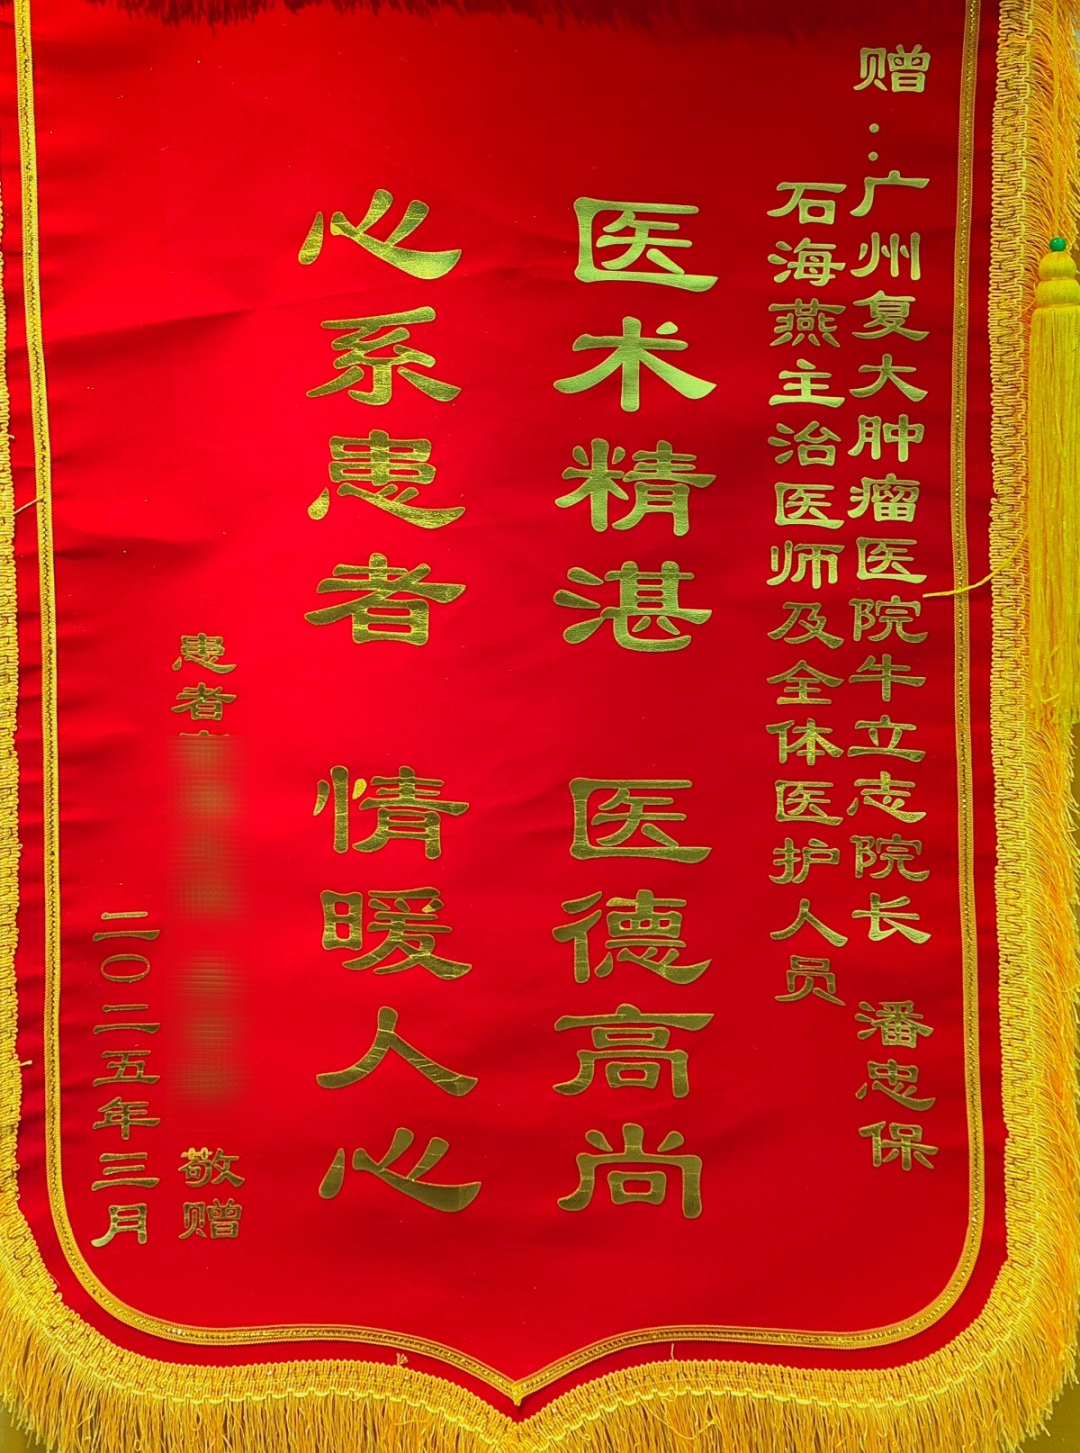 赠：广州复大肿瘤医院牛立志院长 潘忠保
石海燕主治医师及全体医护人员
医术精湛 医德高尚
心系患者 情暖人心
患者 敬赠
二〇二五年三月